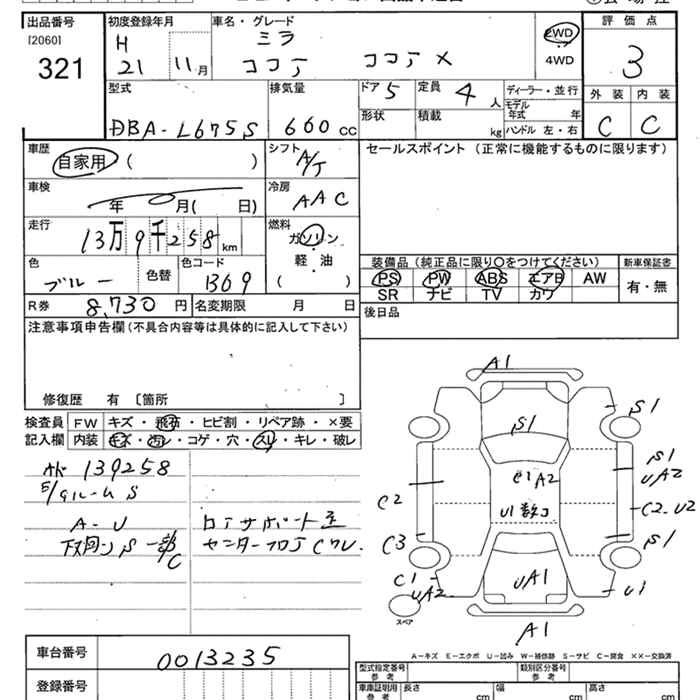 出品番号 初度登録年月 車名・グレード 評価点
[2060] H ミラ 2WD
321 21 11月 ココア ココア X 4WD 3
型式 排気量 ドア 5 定員 4人 ディーラー・並行 外装 内装
モデル年式 年
DBA-L675S 660cc 形状 積載 kg ハンドル 左・右 C C
車歴 シフト セールスポイント (正常に機能するものに限ります)
自家用 ( ) A/T
車検 冷房
年 月( 日) AAC
走行 燃料
13万9千258km ガソリン
軽・油
色 色替 色コード ( ) 装備品 (純正品に限り〇をつけてください) 新車保証書
ブルー B69 PS PW ABS エアB AW 有・無
SR ナビ TV カワ
R券 8,730円 名変期限 月 日 後日品
注意事項申告欄 (不具合内容等は具体的に記入して下さい)
修復歴 有 [箇所 ]
検査員 FW キズ・飛石・ヒビ割・リペア跡・×要
記入欄 内装 キズ・汚レ・コゲ・穴・スリ・キレ・破レ
139258
E/gルームS
A-U
下廻りS一部C
コアサポート
センターフロア Cワレ
A1
S1
S1
S1
C1A2
UA2
C2
U1数コ
C2.U2
C3
S1
C1
UA2
UA1
U1
スペア
A1
A-キズ E-エクボ U-凹み W-補修跡 S-サビ C-腐食 XX-交換済
車台番号 0013235
型式指定番号 参考 類別区分番号 参考
登録番号 車庫証明用 参考 長さ cm 幅 cm 高さ cm